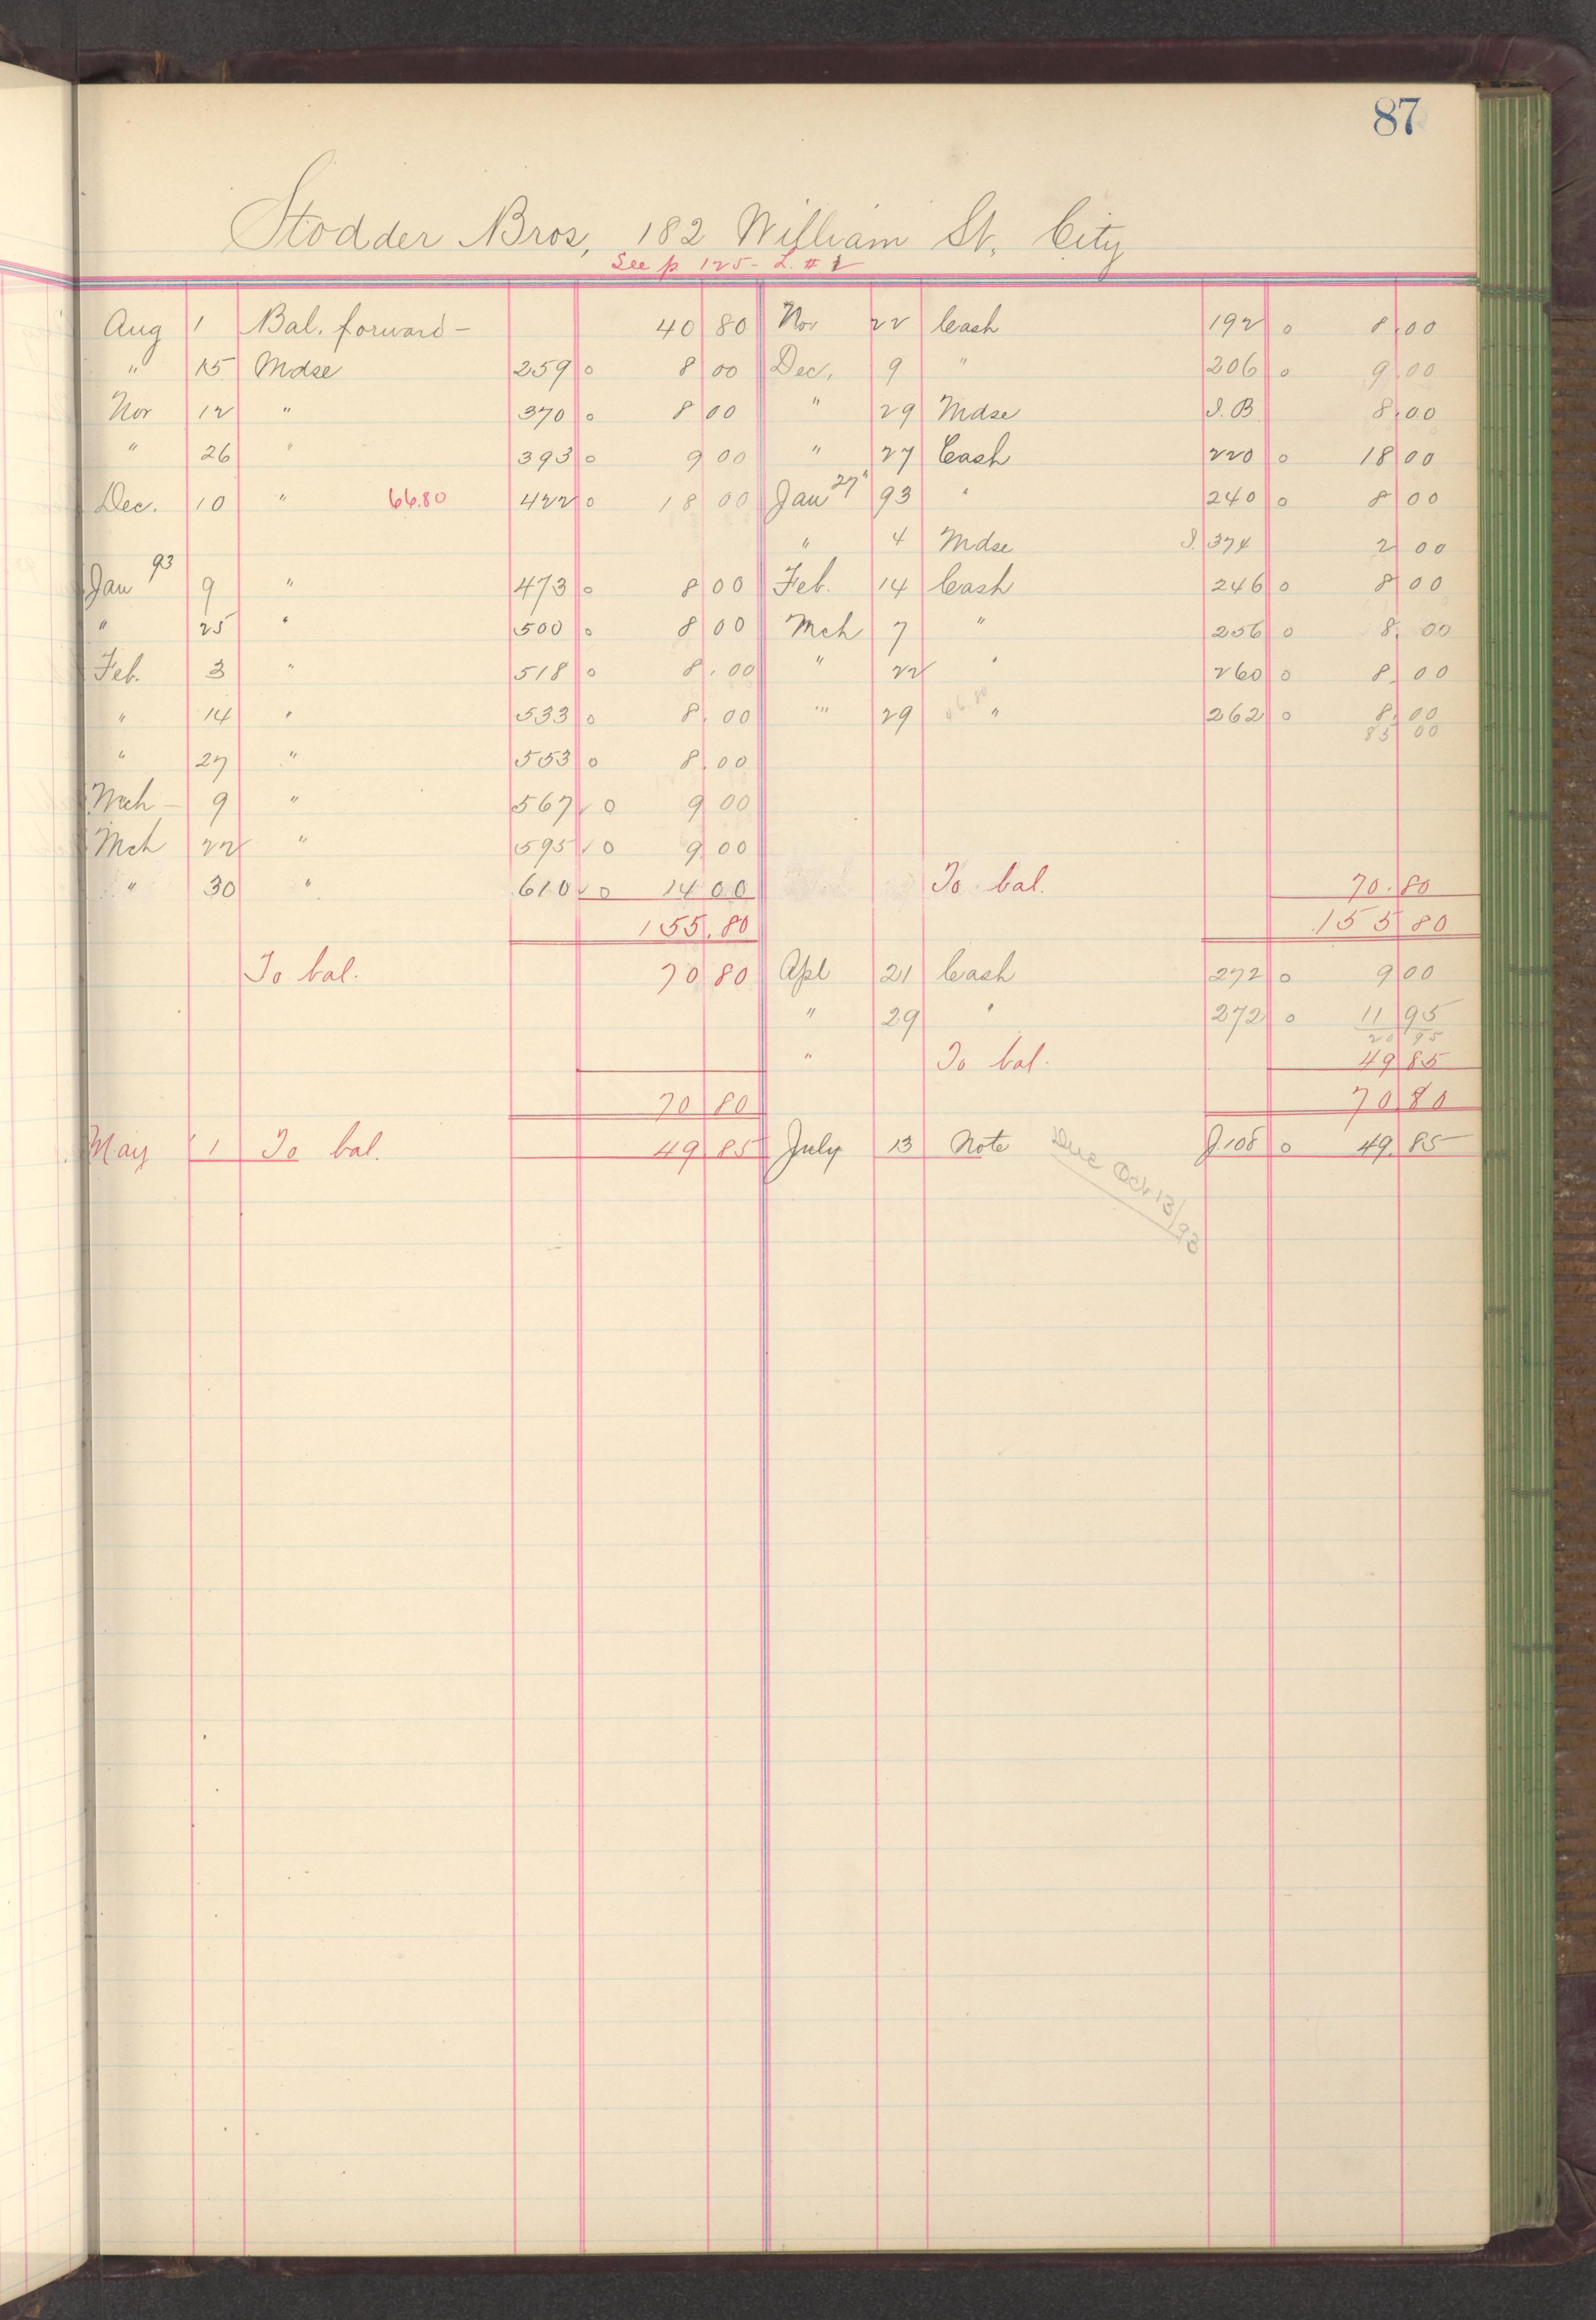 87
Stodder Bros, 182 William St. City
See p 125 - L. # 1
Aug 1 Bal. forward — 40 80 Nov 22 Cash 192 o 8.00
" 15 Mdse 259 o 8 00 Dec. 9 " 206 o 9.00
Nov 12 " 370 o 8 00 " 29 Mdse J.B 8.00
" 26 " 393 o 9 00 " 27 Cash 220 o 18 00
Dec. 10 " 66.80 422 o 18 00 Jan 27" 93 " 240 o 8 00
" 4 Mdse J. 374 2 00
Jan 93 9 " 473 o 8 00 Feb. 14 Cash 246 o 8 00
" 25 " 500 o 8 00 Mch 7 " 256 o 8. 00
Feb. 3 " 518 o 8.00 " 22 " 260 o 8. 00
" 14 " 533 o 8.00 " 29 " 262 o 8.00
85 00
" 27 " 553 o 8.00
Mch — 9 " 567 o 9 00
Mch 22 " 595 o 9 00
" 30 " 610 o 14 00 To bal. 70.80
155.80 155 80
To bal. 70 80 Apl 21 Cash 272 o 9 00
" 29 " 272 o 11 95
20 95
" To bal. 49 85
70 80 70 80
May 1 To bal. 49 85 July 13 Note J.108 o 49.85
Due Oct 13/93